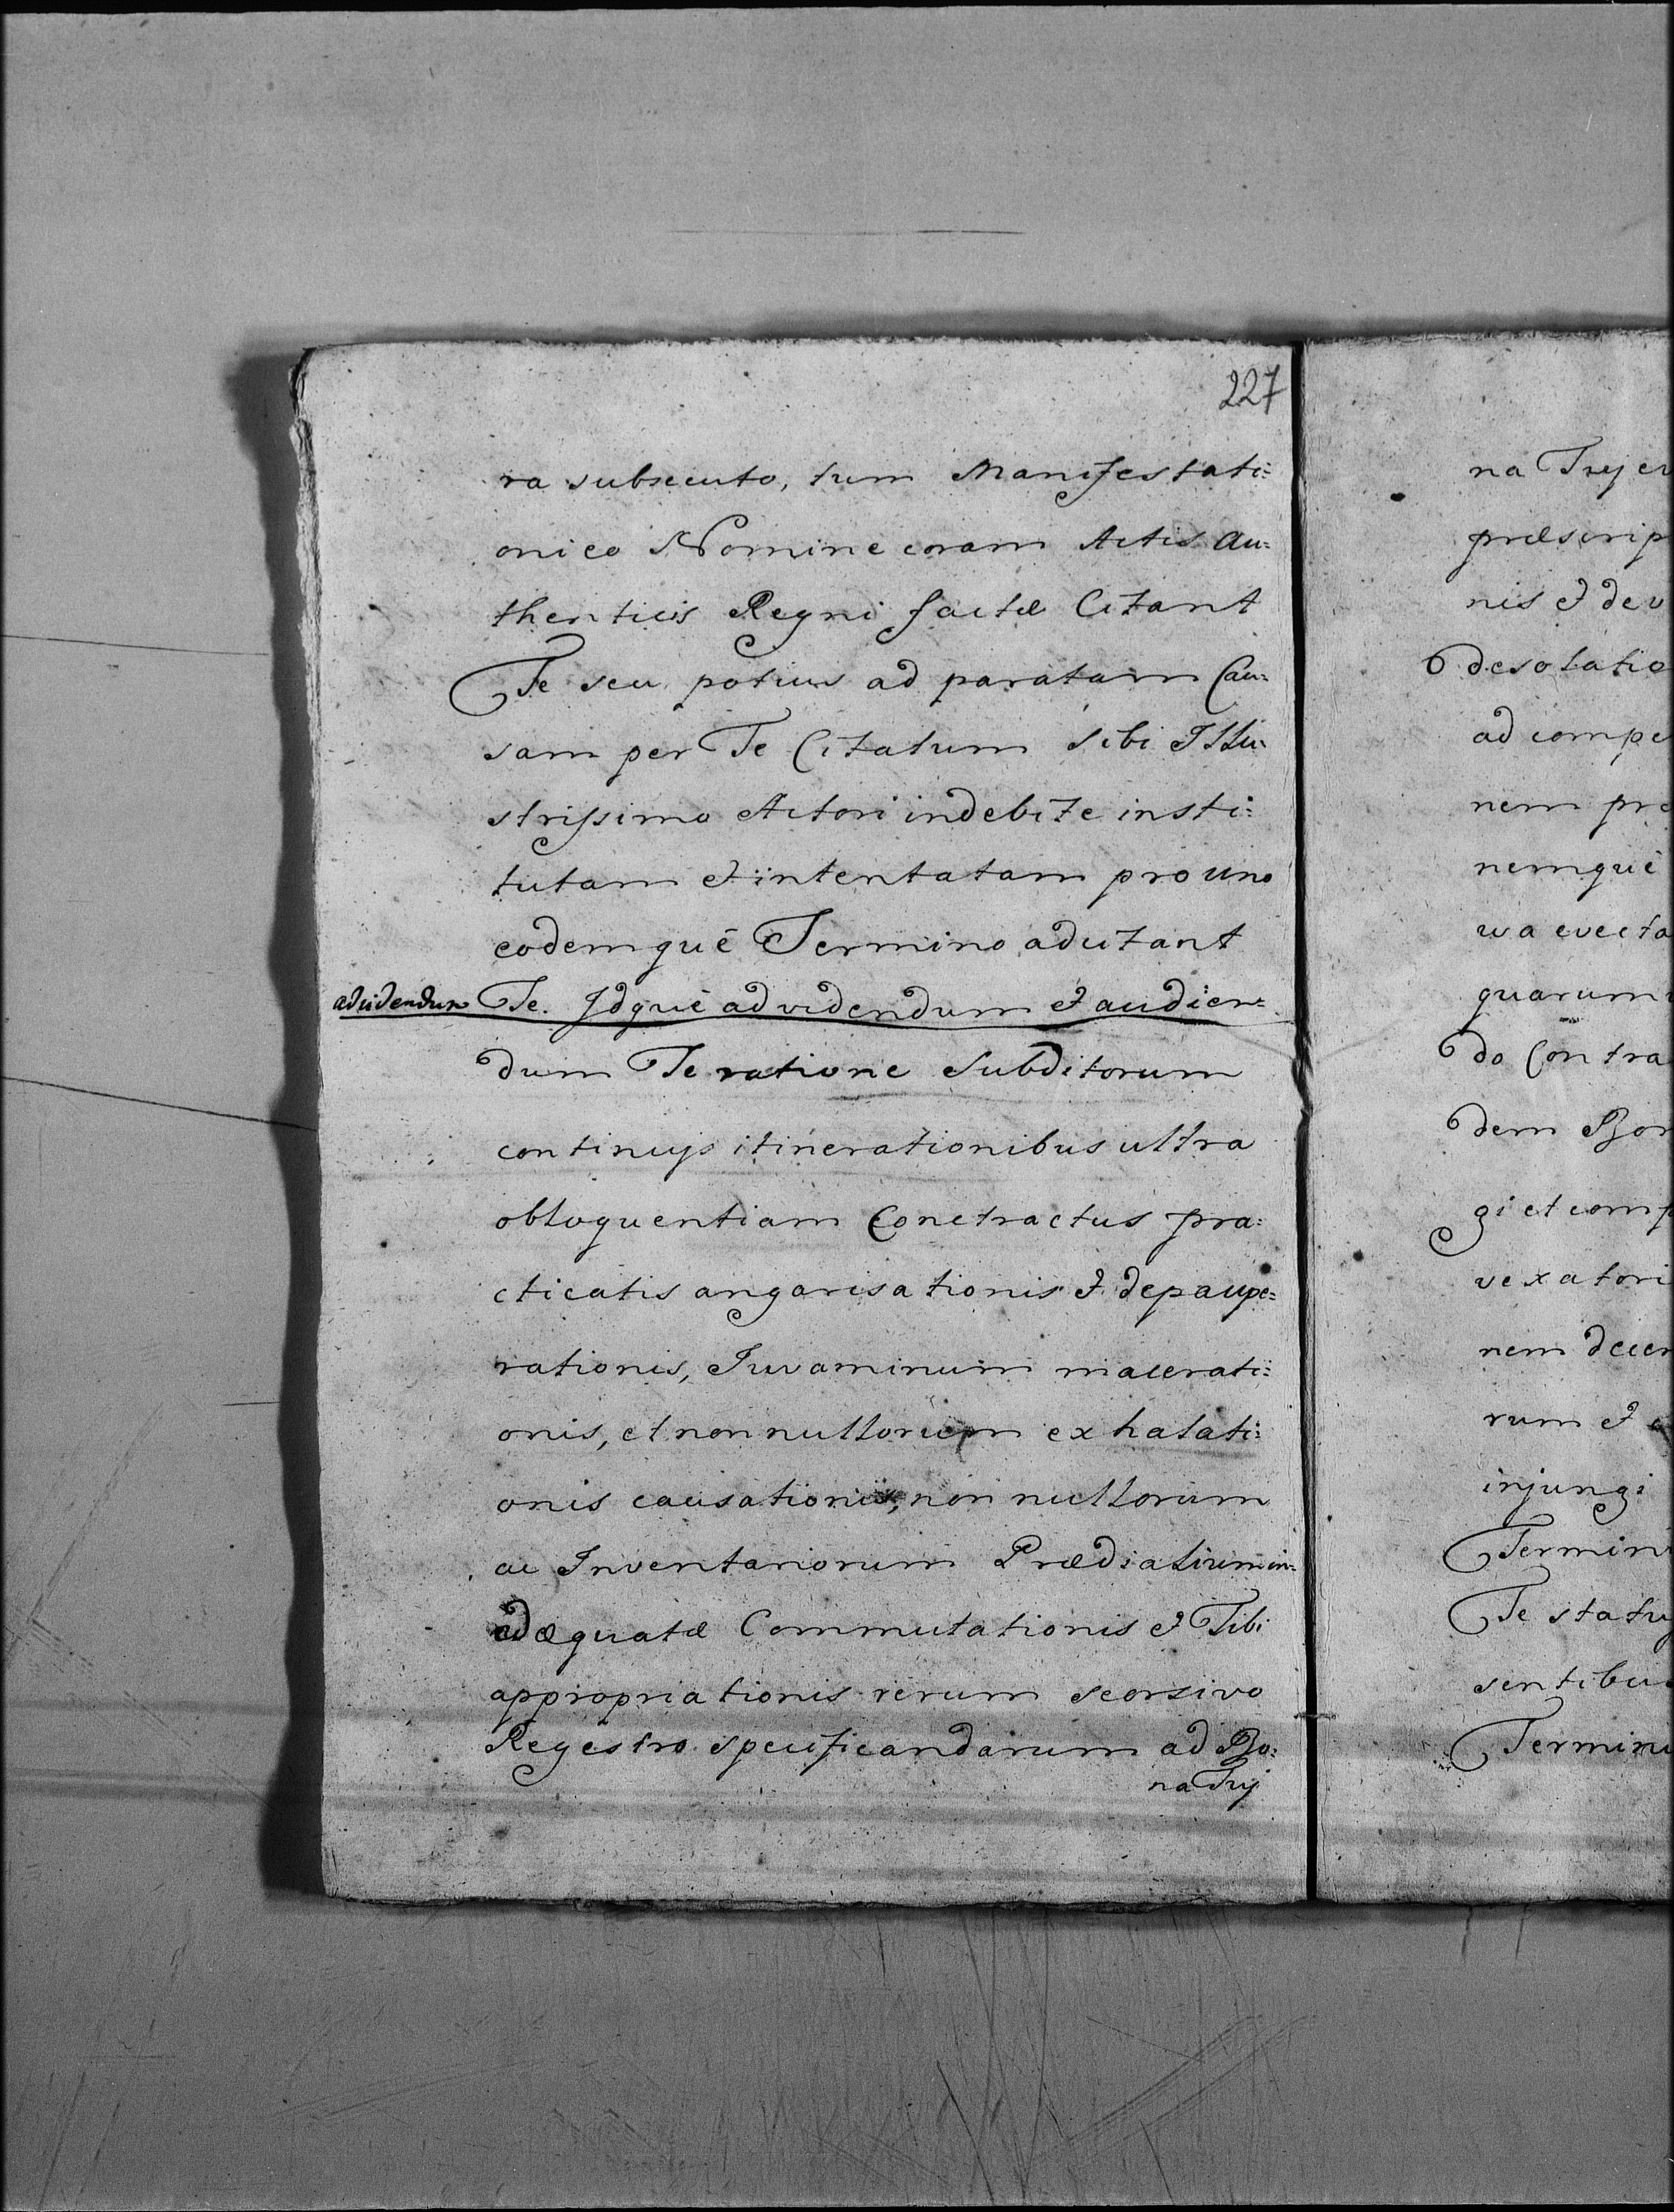 227
ra subsecuto, tum Manifestati=
onico Nomine coram Actis Au=
thenticis Regni factæ Citant
Te seu potius ad paratam Cau=
sam per Te Citatum sibi Illu=
strissimo Actori indebite insti=
tutam et intentatam pro uno
eodemquè Termino adcitant
ad videndum Te. Idquè ad videndum et audien=
dum Te ratione Subditorum
continuis itinerationibus ultra
obloquentiam Conctractus pra=
cticatis angarisationis et depaupe=
rationis, Juvaminum macerati=
onis, et nonnullorum exhalati=
onis causationis, non nullorum
ac Inventariorum Prædialium in=
adæquatæ Commutationis et Tibi
appropriationis rerum seorsivo
Regestro specificandarum ad Bo=
na Trij
na Trij et
præscrip
nis et dev
desolatio
ad compe
nem pro
nemquè
wa evecta
quarum
do Contra
dem Bon
gi et comp
vexatori
nem decer
rum et
injungi
Termin
Te statu
sentibus
Terminu